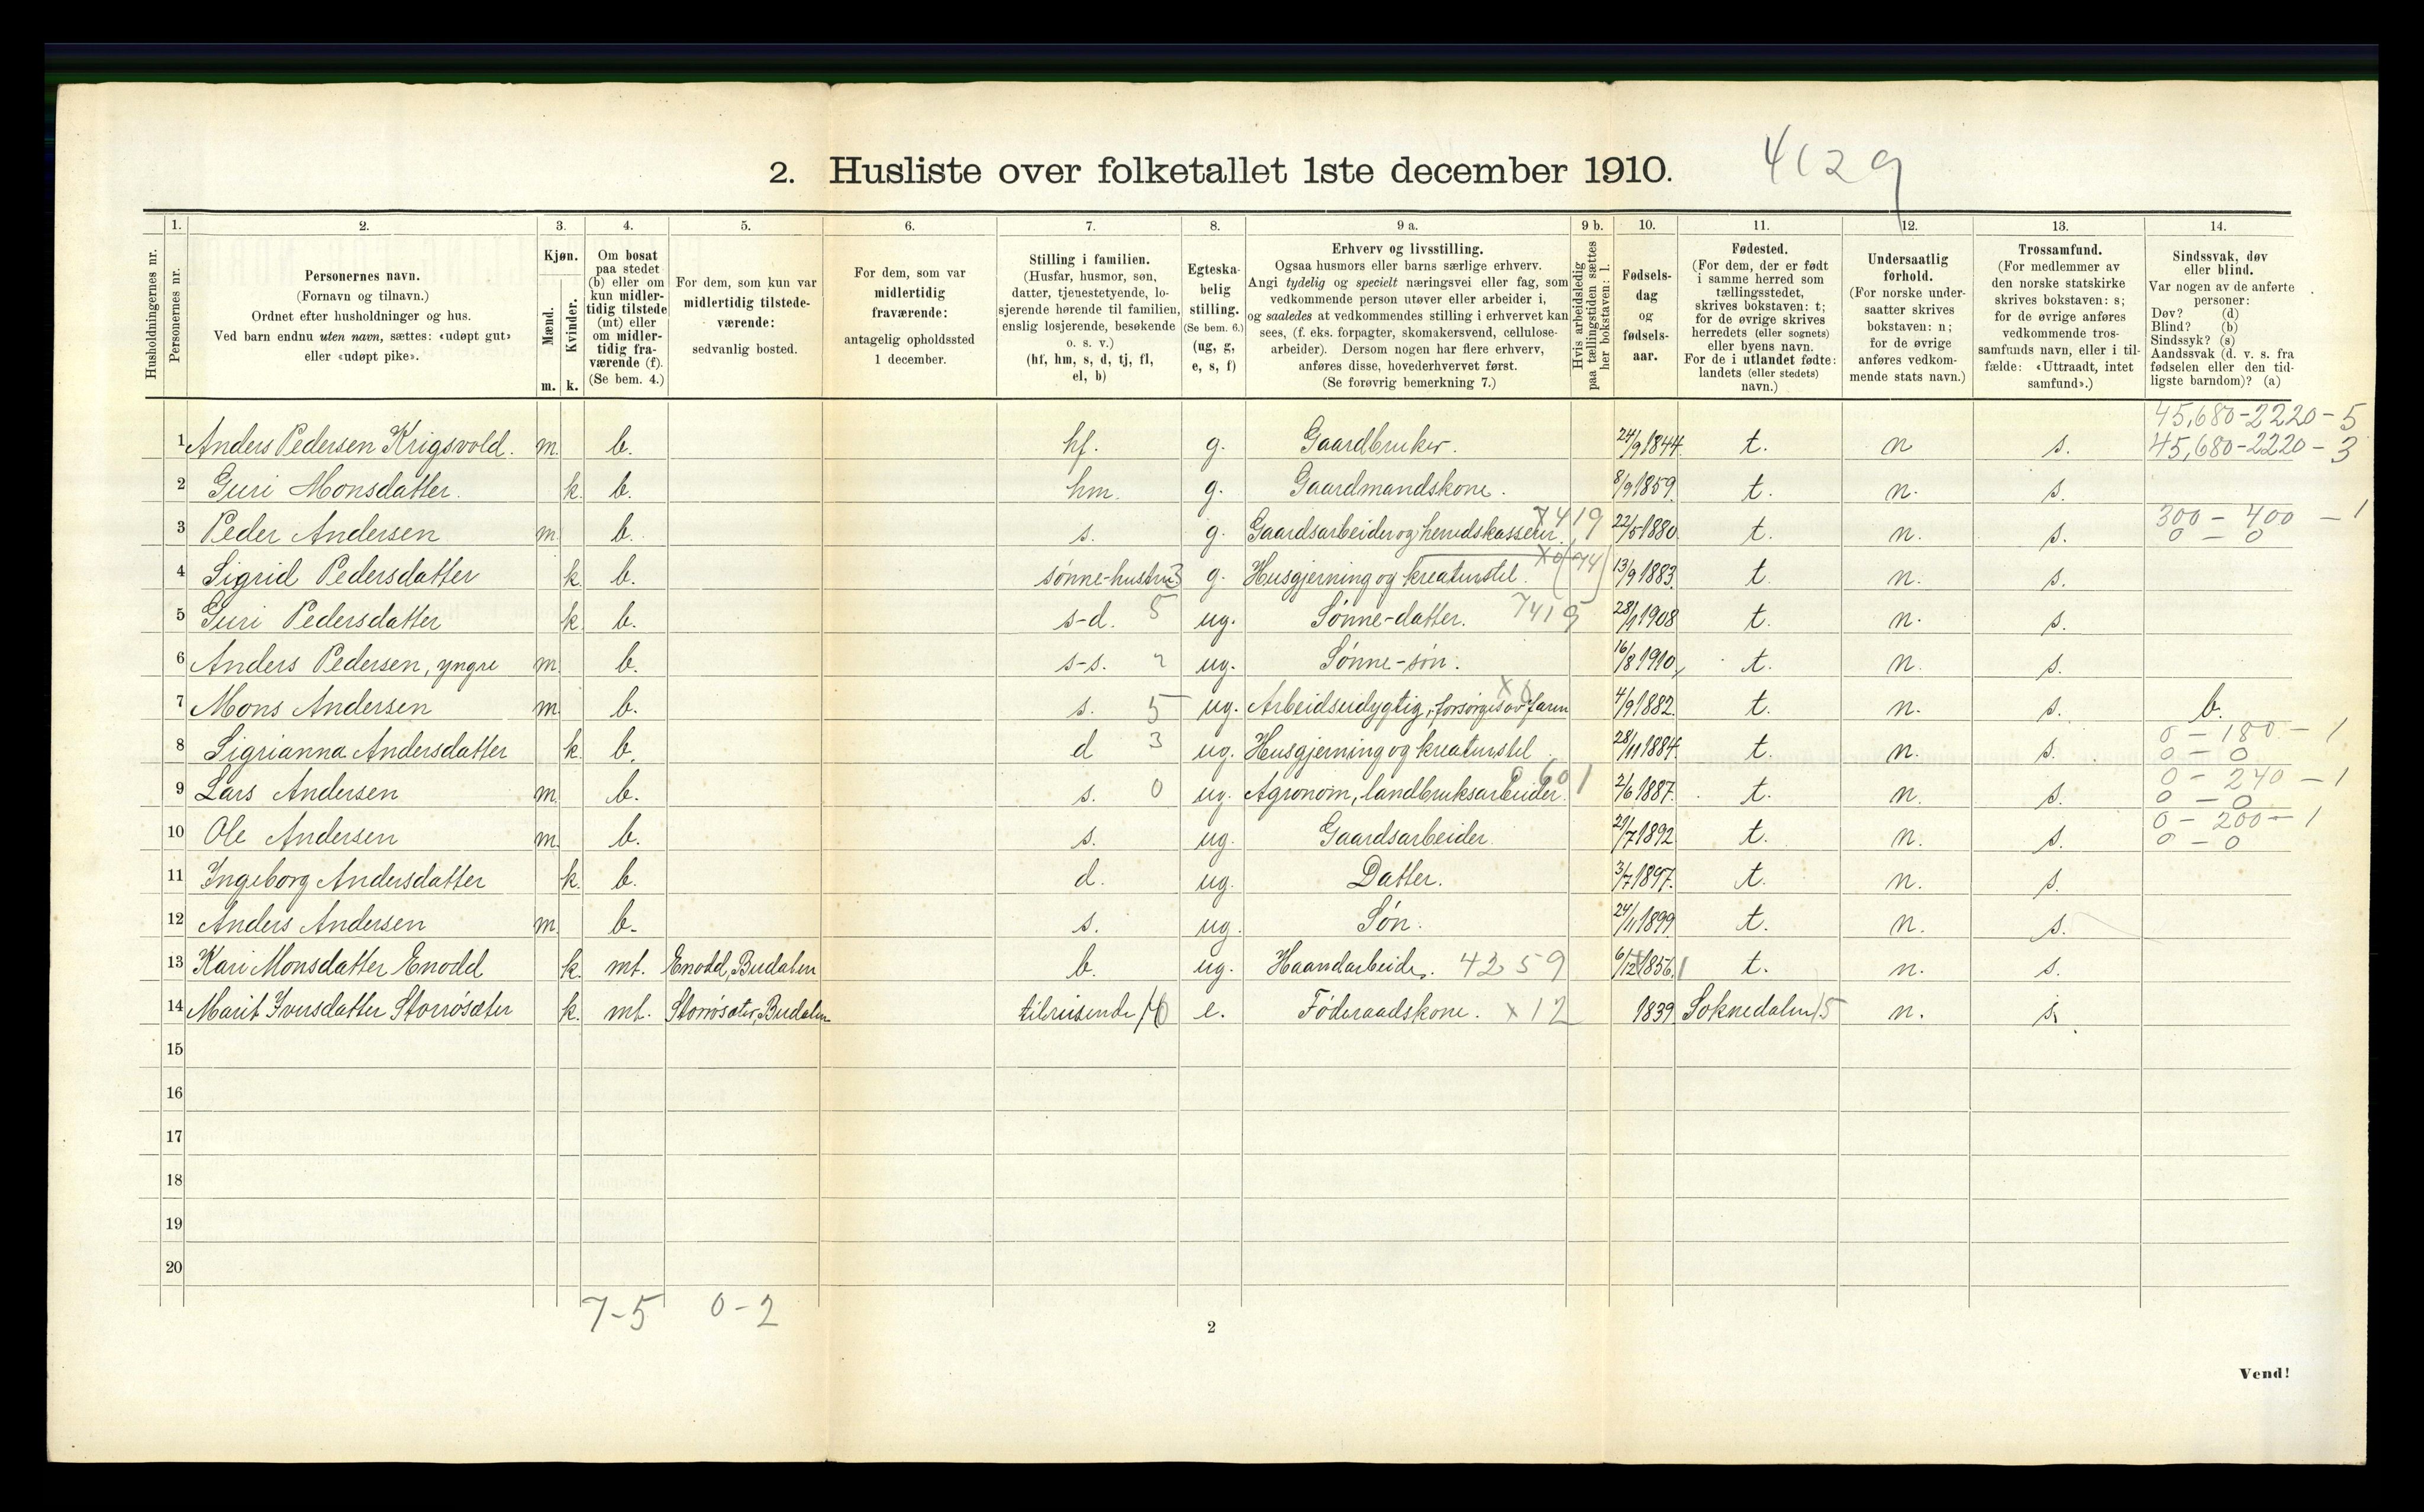 2. Husliste over folketallet 1ste december 1910.
4129
Husholdningernes nr.
1.
Personernes nr.
2.
Personernes navn.
(Fornavn og tilnavn.)
Ordnet efter husholdninger og hus.
Ved barn endnu uten navn, sættes: «udøpt gut»
eller «udøpt pike».
3.
Kjøn.
Mænd.
Kvinder.
m. k.
4.
Om bosat
paa stedet
(b) eller om
kun midler-
tidig tilstede
(mt) eller
om midler-
tidig fra-
værende (f).
(Se bem. 4.)
5.
For dem, som kun var
midlertidig tilstede-
værende:
sedvanlig bosted.
6.
For dem, som var
midlertidig
fraværende:
antagelig opholdssted
1 december.
7.
Stilling i familien.
(Husfar, husmor, søn,
datter, tjenestetyende, lo-
sjerende hørende til familien,
enslig losjerende, besøkende
o. s. v.)
(hf, hm, s, d, tj, fl,
el, b)
8.
Egteska-
belig
stilling.
(Se bem. 6.)
(ug, g,
e, s, f)
9 a.
Erhverv og livsstilling.
Ogsaa husmors eller barns særlige erhverv.
Angi tydelig og specielt næringsvei eller fag, som
vedkommende person utøver eller arbeider i,
og saaledes at vedkommendes stilling i erhvervet kan
sees, (f. eks. forpagter, skomakersvend, cellulose-
arbeider). Dersom nogen har flere erhverv,
anføres disse, hovederhvervet først.
(Se forøvrig bemerkning 7.)
9 b.
Hvis arbeidsledig
paa tællingstiden sættes
her bokstaven: l.
10.
Fødsels-
dag
og
fødsels-
aar.
11.
Fødested.
(For dem, der er født
i samme herred som
tællingsstedet,
skrives bokstaven: t;
for de øvrige skrives
herredets (eller sognets)
eller byens navn.
For de i utlandet fødte:
landets (eller stedets)
navn.)
12.
Undersaatlig
forhold.
(For norske under-
saatter skrives
bokstaven: n;
for de øvrige
anføres vedkom-
mende stats navn.)
13.
Trossamfund.
(For medlemmer av
den norske statskirke
skrives bokstaven: s;
for de øvrige anføres
vedkommende tros-
samfunds navn, eller i til-
fælde: «Uttraadt, intet
samfund».)
14.
Sindssvak, døv
eller blind.
Var nogen av de anførte
personer:
Døv? (d)
Blind? (b)
Sindssyk? (s)
Aandssvak (d. v. s. fra
fødselen eller den tid-
ligste barndom)? (a)
45,680-2220-5
1 Anders Pedersen Krigsvold. m. b. hf. g. Gaardbruker. 24/9 1844. t. n s. 45,680-2220-3
2 Guri Monsdatter. k. b. hm. g. Gaardmandskone. 8/9 1859. t. n. s.
3 Peder Andersen m. b. s. g. Gaardsarbeider og herredskasserer. 7419 22/5 1880. t. n. s. 300 - 400 - 1 0 - 0
4 Sigrid Pedersdatter k. b. sønne-hustru 3 g. Husgjerning og kreaturstel. 13/9 1883. t. n. s.
5 Guri Pedersdatter k. b. s-d. 5 ug. Sønne-datter. 7419 28/1 1908 t. n. s.
6 Anders Pedersen, yngre m. b. s-s. 2 ug. Sønne-søn. 16/8 1910, t. n. s.
7 Mons Andersen m. b. s. 5 ug. Arbeidsudygtig, forsørges av faren 4/9 1882. t. n. s. b.
8 Sigrianna Andersdatter k. b. d 3 ug. Husgjerning og kreaturstel 28/11 1884. t. n. s. 0 - 180 - 1 0 - 0
9 Lars Andersen m. b. s. 0 ug. Agronom, landbruksarbeider. 2/6 1887. t. n. s. 0 - 240 - 1 0 - 0
10 Ole Andersen m. b. s. ug. Gaardsarbeider. 29/7 1892 t. n. s. 0 - 200 - 1 0 - 0
11 Ingeborg Andersdatter k. b. d. ug. Datter. 3/7 1897. t. n. s.
12 Anders Andersen m. b. s. ug. Søn. 24/11 1899. t. n. s.
13 Kari Monsdatter Enodd k. mt. Enodd, Budalen b. ug. Haandarbeide. 4259 6/12 1856. t. n. s.
14 Marit Iversdatter Storrøsæter k. mt. Storrøsæter, Budalen tilreisende e. Føderaadskone. x12 1839 Soknedalen 15 n. s.
15
16
17
18
19
20
7-5 0-2
2
Vend!